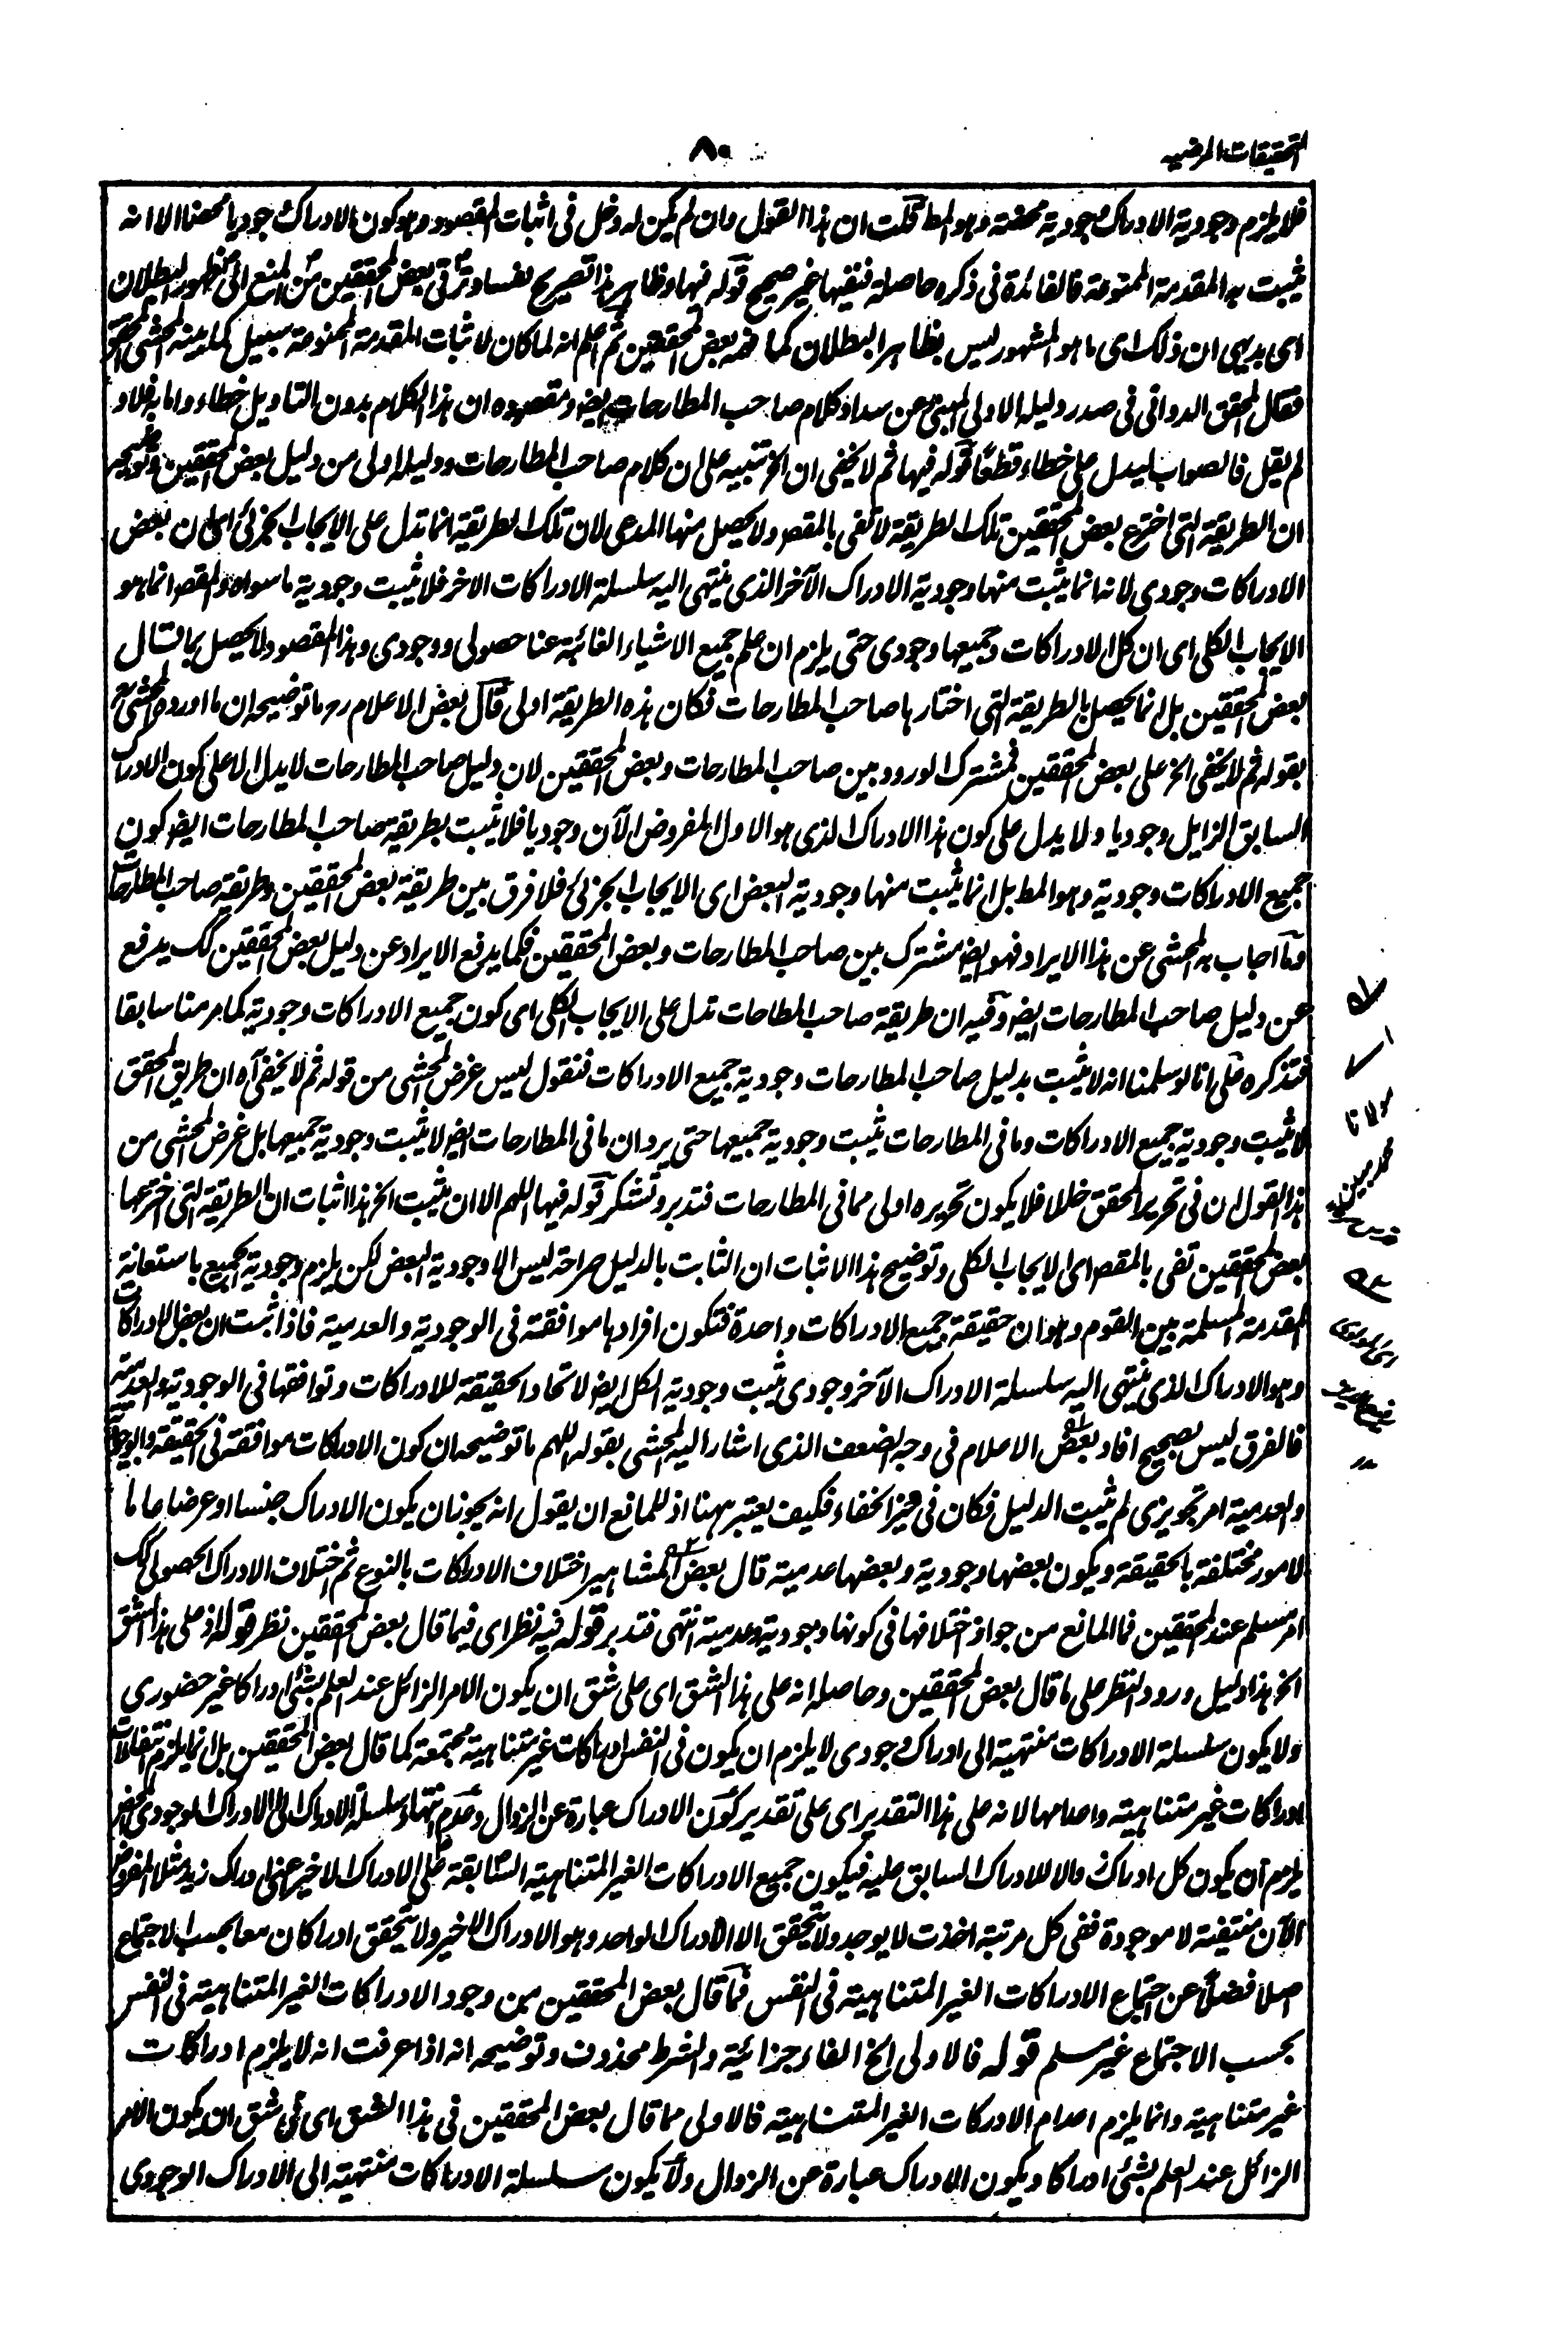 التحقيقات المرضيه
٨٠
فلا يلزم وجودية الادراك وجودية محضة وهو المط قلت ان هذا القول وان لم يكن له دخل فى اثبات المقصود وهو كون الادراك وجوديا محضا الا انه
يثبت به المقدمة الممنوعة فالفائدة فى ذكره حاصلة فنفيها غير صحيح قوله فيها وظاهر هذا تصريح بفساد ترقى بعض المحققين من المنع الى ظهور البطلان
اى بديهى ان ذلك اى ما هو المشهور ليس بظاهر البطلان كما فهمه بعض المحققين ثم اعلم انه لما كان لاثبات المقدمة الممنوعة سبيل كما بينه المحشى المحقق
فقال المحقق الدوانى فى صدر دليله الاولى المبنئ عن سداد كلام صاحب المطارحات ايض ومقصوده ان هذا الكلام بدون التاويل خطاء واما به فلا و
لم يقل فالصواب ليدل على خطاء قطعًا قوله فيها ثم لا يخفى ان الخ تنبيه على ان كلام صاحب المطارحات ودليله اولى من دليل بعض المحققين وتوضيحه
ان الطريقة التى اخترع بعض المحققين تلك الطريقة لا تفى بالمقصود ولا يحصل منها المدعى لان تلك الطريقة انما تدل على الايجاب الجزئى اى ان بعض
الادراكات وجودى لانه انما يثبت منها وجودية الادراك الآخر الذى ينتهى اليه سلسلة الادراكات الاخر فلا يثبت وجودية ما سواه والمقصود انما هو
الايجاب الكلى اى ان كل الادراكات وجميعها وجودى حتى يلزم ان علم جميع الاشياء الغائبة عنا حصولى ووجودى وهذا المقصود لا يحصل بما قال
بعض المحققين بل انما يحصل بالطريقة التى اختارها صاحب المطارحات فكان هذه الطريقة اولى قال بعض الاعلام رح ما توضيحه ان ما اورده المحشى رح
بقوله ثم لا يخفى الخ على بعض المحققين فمشترك الورود بين صاحب المطارحات وبعض المحققين لان دليل صاحب المطارحات لا يدل الا على كون الادراك
السابق الزايل وجوديا ولا يدل على كون هذا الادراك الذى هو الاول المفروض الآن وجوديا فلا يثبت بطريقة صاحب المطارحات ايض كون
جميع الادراكات وجودية وهو المط بل انما يثبت منها وجودية البعض اى الايجاب الجزئى فلا فرق بين طريقة بعض المحققين وطريقة صاحب المطارحات
وما اجاب به المحشى عن هذا الايراد فهو ايض مشترك بين صاحب المطارحات وبعض المحققين فكما يدفع الايراد عن دليل بعض المحققين كك يدفع
عن دليل صاحب المطارحات ايض وفيه ان طريقة صاحب المطاحات تدل على الايجاب الكلى اى كون جميع الادراكات وجودية كما مر منا سابقا
فتذكره على انا لو سلمنا انه لا يثبت بدليل صاحب المطارحات وجودية جميع الادراكات فنقول ليس غرض المحشى من قوله ثم لا يخفى آه ان طريق المحقق
لا يثبت وجودية جميع الادراكات وما فى المطارحات يثبت وجودية جميعها حتى يرد ان ما فى المطارحات ايض لا يثبت وجودية جميعها بل غرض المحشى من
هذا القول ان فى تحرير المحقق خللا فلا يكون تحريره اولى مما فى المطارحات فتدبر وتشكر قوله فيها اللهم الا ان يثبت الخ هذا اثبات ان الطريقة التى اخترعها
بعض المحققين تفى بالمقصود اى الايجاب الكلى وتوضيح هذا الاثبات ان الثابت بالدليل صراحة ليس الا وجودية البعض لكن يلزم وجودية الجميع باستعانة
المقدمة المسلمة بين القوم وهو ان حقيقة جميع الادراكات واحدة فتكون افرادها موافقة فى الوجودية والعدمية فاذا ثبت ان بعض الادراكات
وهو الادراك الذى ينتهى اليه سلسلة الادراك الآخر وجودى يثبت وجودية الكل ايض لاتحاد الحقيقة للادراكات وتوافقها فى الوجودية والعدمية
فالفرق ليس بصحيح افاد بعض الاعلام فى وجه الضعف الذى اشار اليه المحشى بقوله اللهم ما توضيحه ان كون الادراكات موافقة فى الحقيقة والوجودية
والعدمية امر تجويزى لم يثبت الدليل فكان فى حيز الخفاء فكيف يعتبر ههنا اذ للمانع ان يقول انه يجوز ان يكون الادراك جنسا او عرضا عاما
لامور مختلفة بالحقيقة ويكون بعضها وجودية وبعضها عدمية قال بعض المشاهير اختلاف الادراكات بالنوع ثم اختلاف الادراك الحصولى كك
امر مسلم عند المحققين فما المانع من جواز اختلافها فى كونها وجودية وعدمية انتهى فتدبر قوله فيه نظر اى فيما قال بعض المحققين نظر قوله اذ على هذا الشق
الخ هذا دليل ورود النظر على ما قال بعض المحققين وحاصله انه على هذا الشق اى على شق ان يكون الامر الزائل عند العلم بشئ ادراكا غير حضورى
ولا يكون سلسلة الادراكات منتهية الى ادراك وجودى لا يلزم ان يكون فى النفس ادراكات غير متناهية مجتمعة كما قال بعض المحققين بل انما يلزم انتفاءات
ادراكات غير متناهية واعدامها لانه على هذا التقدير اى على تقدير كون الادراك عبارة عن الزوال وعدم انتهاء سلسلة الادراك الى الادراك الوجودى المحض
يلزم ان يكون كل ادراك زوالا للادراك السابق عليه فيكون جميع الادراكات الغير المتناهية السابقة على الادراك الاخير اعنى ادراك زيد مثلا المفروض
الآن منتفية لا موجودة ففى كل مرتبة اخذت لا يوجد ولا يتحقق الا الادراك الواحد وهو الادراك الاخير ولا يتحقق ادراكان معا بحسب الاجتماع
اصلا فضلًا عن اجتماع الادراكات الغير المتناهية فى النفس فما قال بعض المحققين من وجود الادراكات الغير المتناهية فى النفس
بحسب الاجتماع غير مسلم قوله فالاولى الخ الفاء جزائية والشرط محذوف وتوضيحه انه اذا عرفت انه لا يلزم ادراكات
غير متناهية وانما يلزم اعدام الادركات الغير المتناهية فالاولى مما قال بعض المحققين فى هذا الشق اى فى شق ان يكون الامر
الزائل عند العلم بشئ ادراكا ويكون الادراك عبارة عن الزوال ولا يكون سلسلة الادراكات منتهية الى الادراك الوجودى
مولانا
محمد مبين